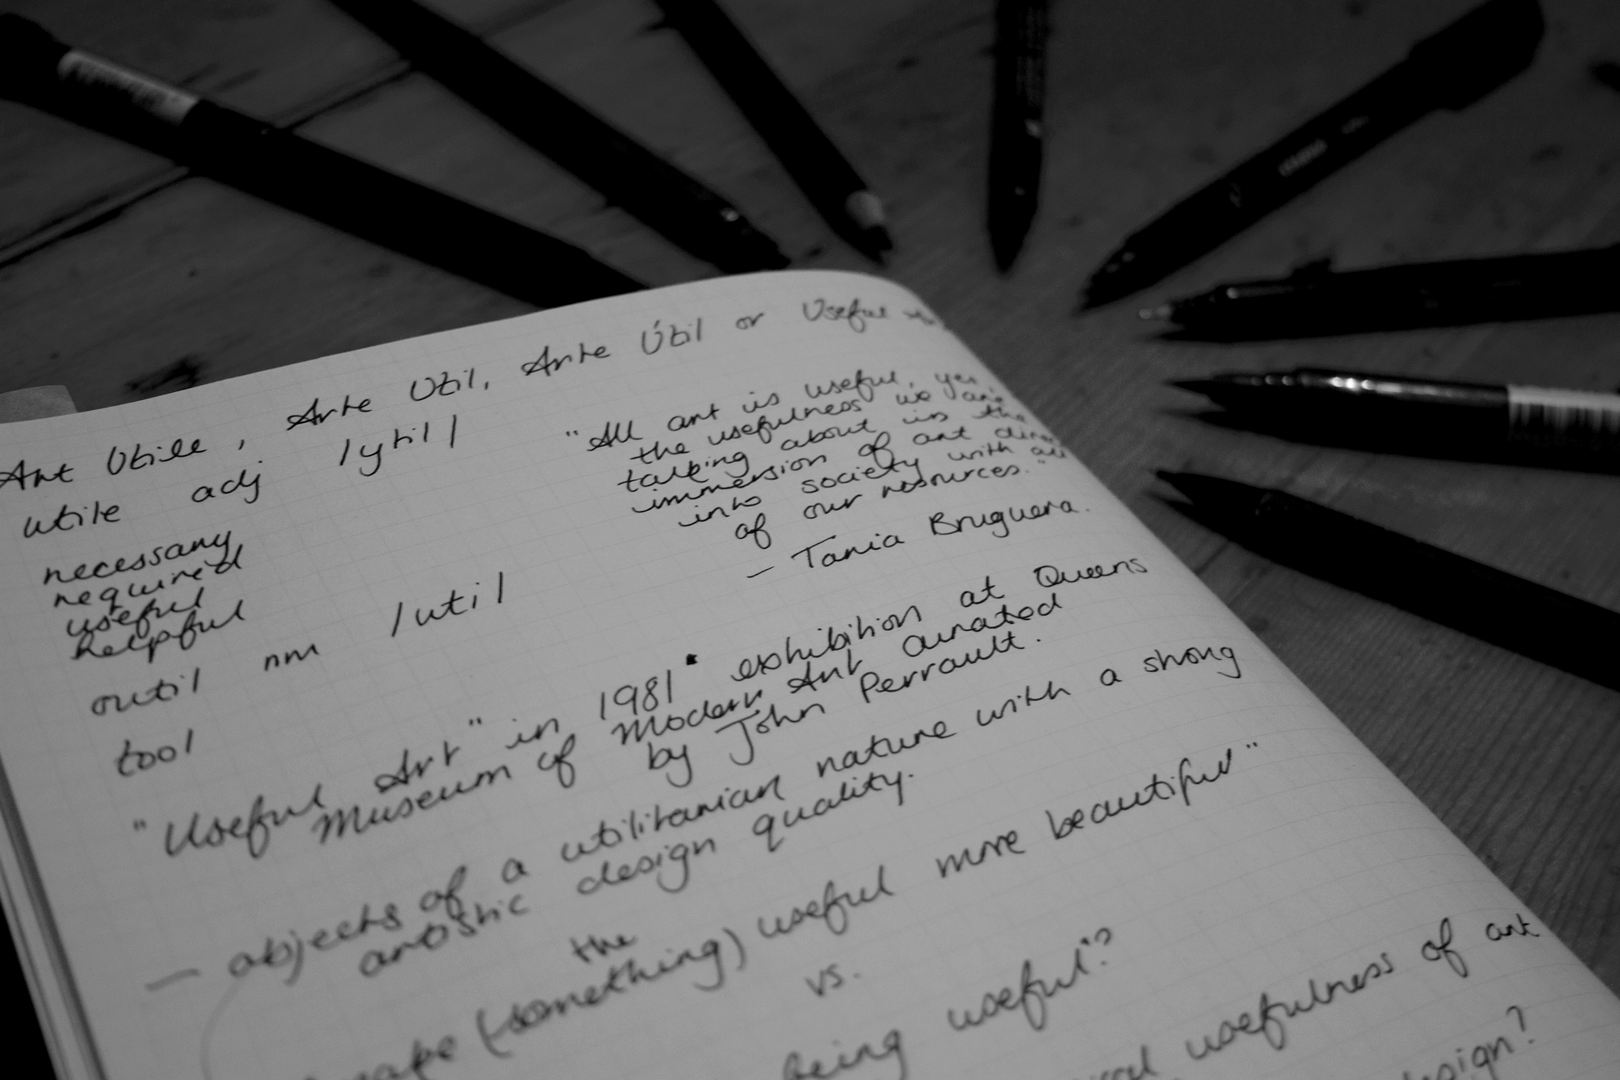 Art Utile, Arte Util, Arte Útil or Useful
utile adj /ytil/
necessary
required
useful
helpful
outil nm /util/
tool
"All art is useful, yes,
the usefulness we are
talking about is the
immersion of art
into society with all
of our resources."
– Tania Bruguera.
"Useful Art" in 1981 exhibition at Queens
Museum of Modern Art curated
by John Perrault.
– objects of a utilitarian nature with a strong
artistic design quality.
the
(something) useful more beautiful"
vs.
being useful"?
usefulness of art